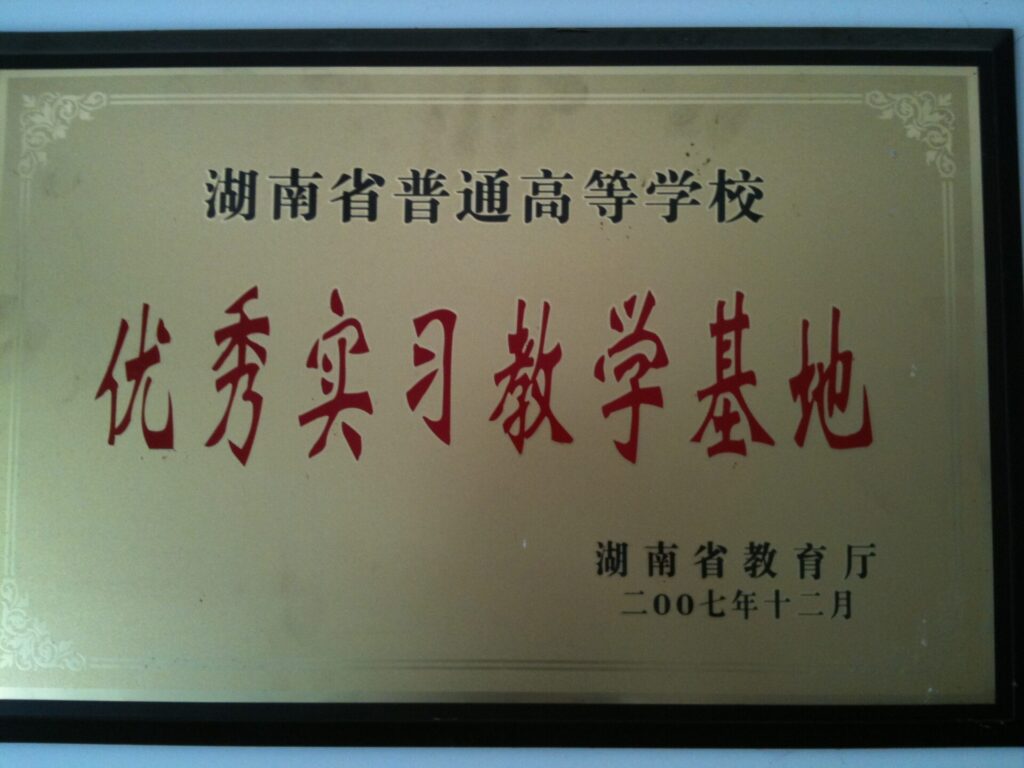 湖南省普通高等学校
优秀实习教学基地
湖南省教育厅
二00七年十二月